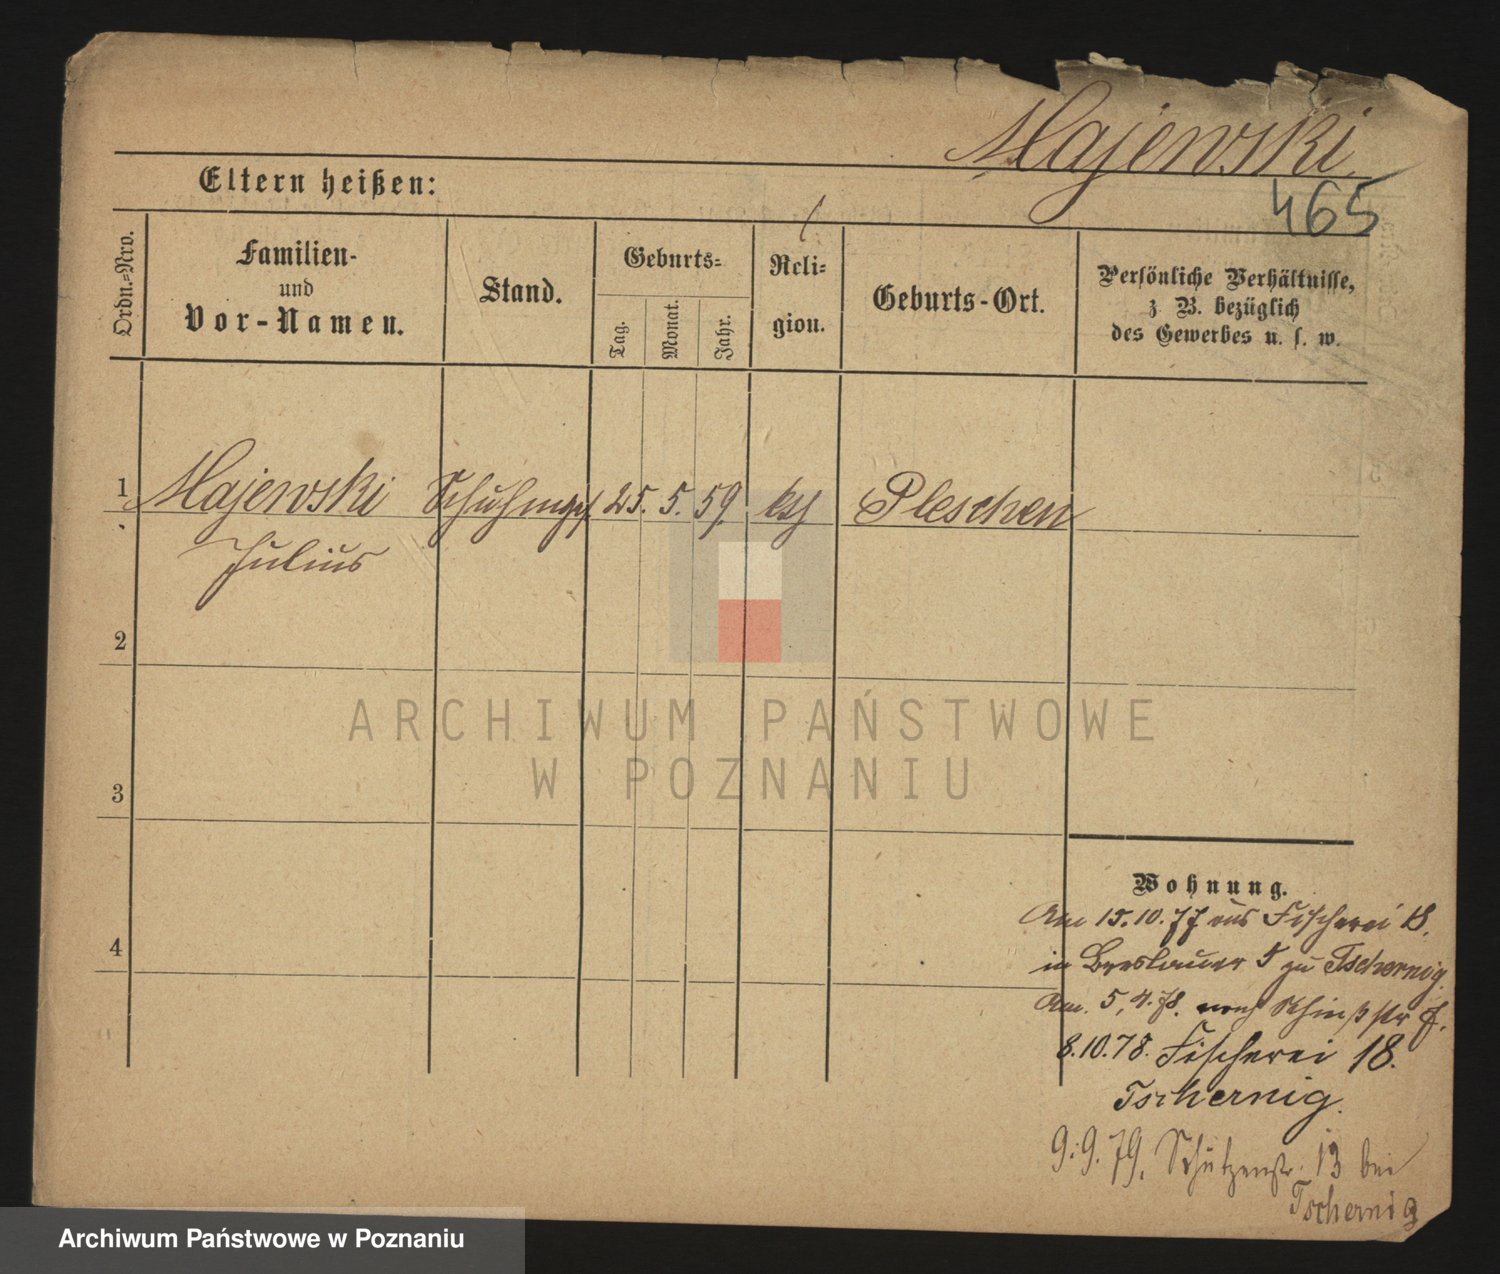 Majewski.
465
Eltern heißen:
Ordn.=Nro.
Familien-
und
Vor-Namen.
Stand.
Geburts=
Tag.
Monat.
Jahr.
Reli=
gion.
Geburts-Ort.
Persönliche Verhältnisse,
z. B. bezüglich
des Gewerbes u. s. w.
1 Majewski Schuhmgs. 25. 5. 59. Pleschen
Julius
2
ARCHIWUM PAŃSTWOWE
W POZNANIU
3
4
Wohnung.
Am 15.10.77 aus Fischerei 18.
in Breslauer 5 zu Tschernig.
Am. 5.4.78. nach
8.10.78. Fischerei 18.
Tschernig.
9.9.79. Schützenstr. 13 bei
Tschernig
Archiwum Państwowe w Poznaniu